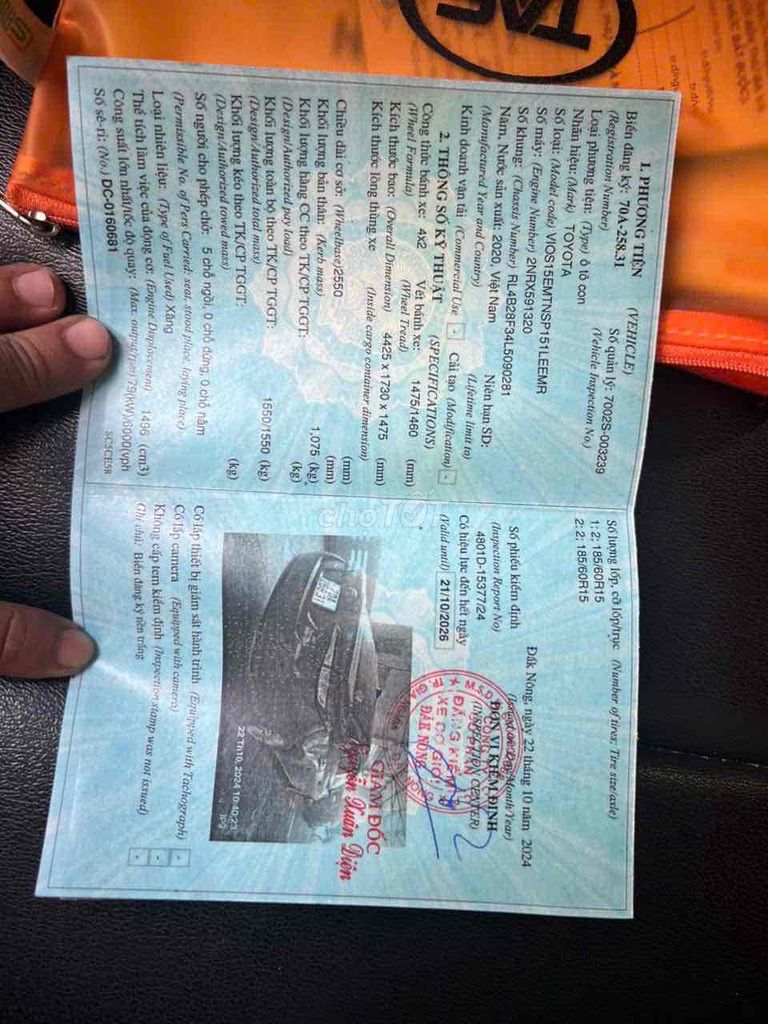 1. PHƯƠNG TIỆN (VEHICLE)
Biển đăng ký: 70A-258.31 Số quản lý: 7002S-003239
(Registration Number) (Vehicle Inspection No.)
Loại phương tiện: (Type) ô tô con
Nhãn hiệu: (Mark) TOYOTA
Số loại: (Model code) VIOS15EMTNSP151LEEMR
Số máy: (Engine Number) 2NRX591320
Số khung: (Chassis Number) RL4B28F34L5090281
Năm, Nước sản xuất: 2020, Việt Nam Niên hạn SD:
(Manufactured Year and Country) (Lifetime limit to)
Kinh doanh vận tải (Commercial Use) - Cải tạo (Modification) -
2. THÔNG SỐ KỸ THUẬT (SPECIFICATIONS)
Công thức bánh xe: 4x2 Vết bánh xe: 1475/1460 (mm)
(Wheel Formula) (Wheel Tread)
Kích thước bao: (Overall Dimension) 4425 x 1730 x 1475 (mm)
Kích thước lòng thùng xe (Inside cargo container dimension)
(mm)
Chiều dài cơ sở: (Wheelbase) 2550 (mm)
Khối lượng bản thân: (Kerb mass) 1,075 (kg)
Khối lượng hàng CC theo TK/CP TGGT: (kg)
(Design/Authorized pay load)
Khối lượng toàn bộ theo TK/CP TGGT: 1550/1550 (kg)
(Design/Authorized total mass)
Khối lượng kéo theo TK/CP TGGT: (kg)
(Design/Authorized towed mass)
Số người cho phép chở: 5 chỗ ngồi, 0 chỗ đứng, 0 chỗ nằm
(Permissible No. of Pers Carried: seat, stood place, laying place)
Loại nhiên liệu: (Type of Fuel Used) Xăng
Thể tích làm việc của động cơ: (Engine Displacement) 1496 (cm3)
Công suất lớn nhất/tốc độ quay: (Max. output/rpm) 79(kW)/6000(vph
Số sê-ri: (No.) DC-0160681 5C5CE58
Số lượng lốp, cỡ lốp/trục (Number of tires; Tire size/axle)
1: 2; 185/60R15
2: 2; 185/60R15
Số phiếu kiểm định
(Inspection Report No)
4801D-15377/24
Có hiệu lực đến hết ngày
(Valid until) 21/10/2026
Đắk Nông, ngày 22 tháng 10 năm 2024
ĐƠN VỊ KIỂM ĐỊNH
(INSPECTION CENTER)
ĐĂNG KIỂM
XE CƠ GIỚI
ĐẮK NÔNG
GIÁM ĐỐC
Nguyễn Xuân Diện
22 Th10, 2024 10:40:23
Có lắp thiết bị giám sát hành trình (Equipped with Tachograph) -
Có lắp camera (Equipped with camera) -
Không cấp tem kiểm định (Inspection stamp was not issued) -
Ghi chú: Biển đăng ký nền trắng
choTỐT